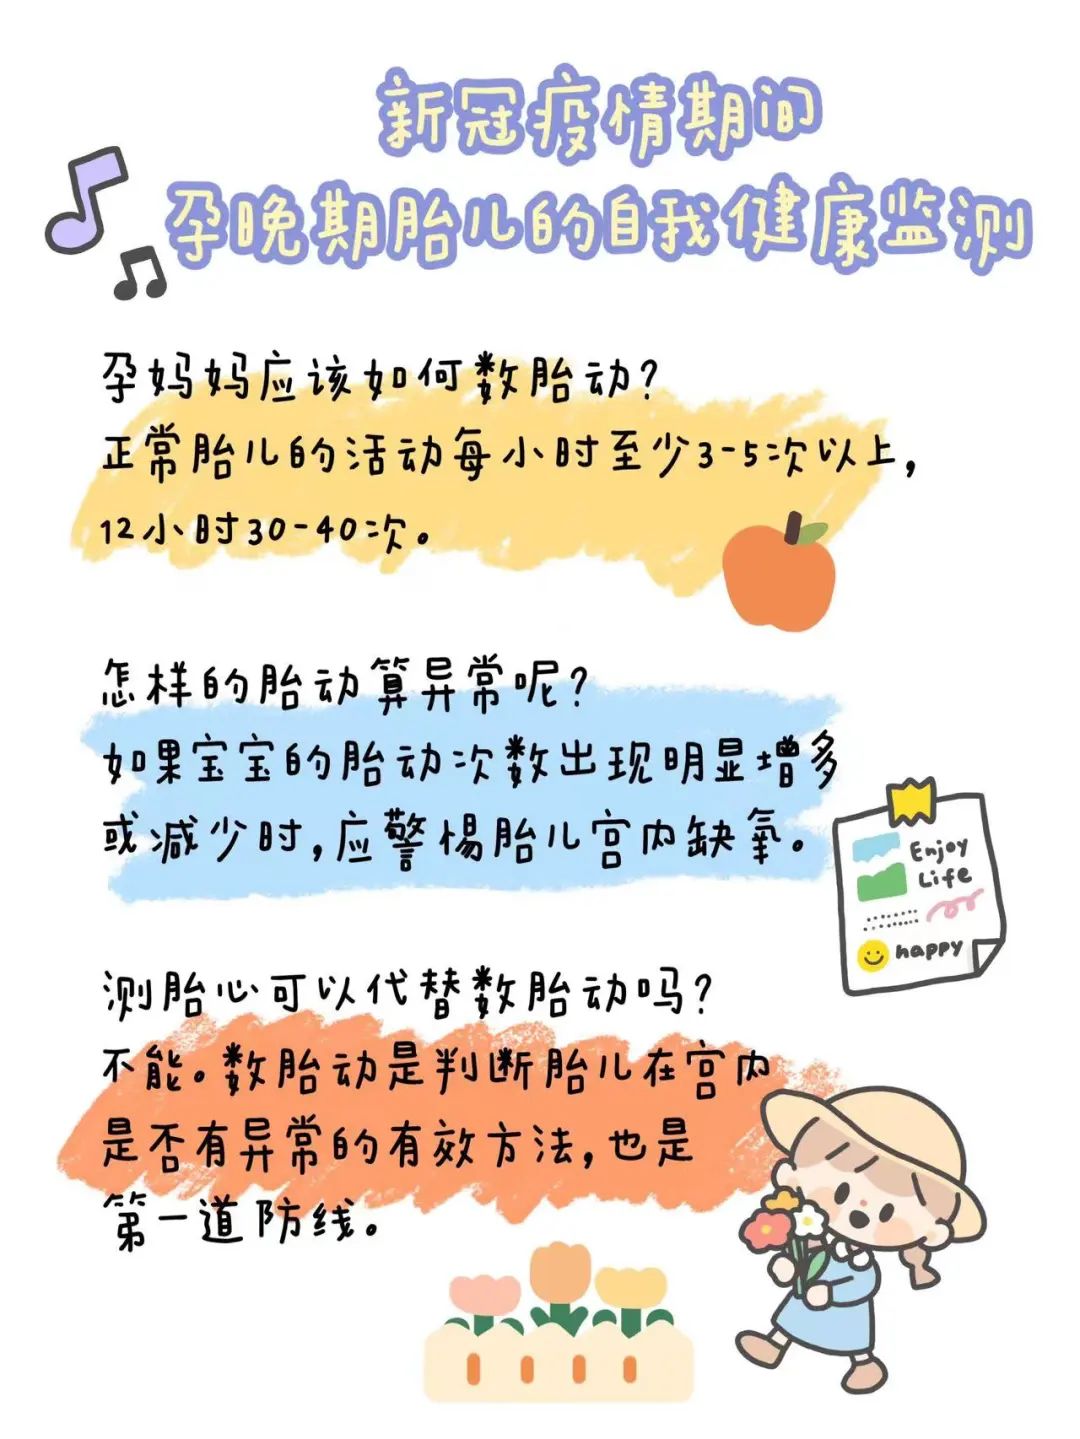 新冠疫情期间
孕晚期胎儿的自我健康监测
孕妈妈应该如何数胎动?
正常胎儿的活动每小时至少3-5次以上,
12小时30-40次。
怎样的胎动算异常呢?
如果宝宝的胎动次数出现明显增多
或减少时,应警惕胎儿宫内缺氧。
Enjoy
Life
happy
测胎心可以代替数胎动吗?
不能。数胎动是判断胎儿在宫内
是否有异常的有效方法,也是
第一道防线。